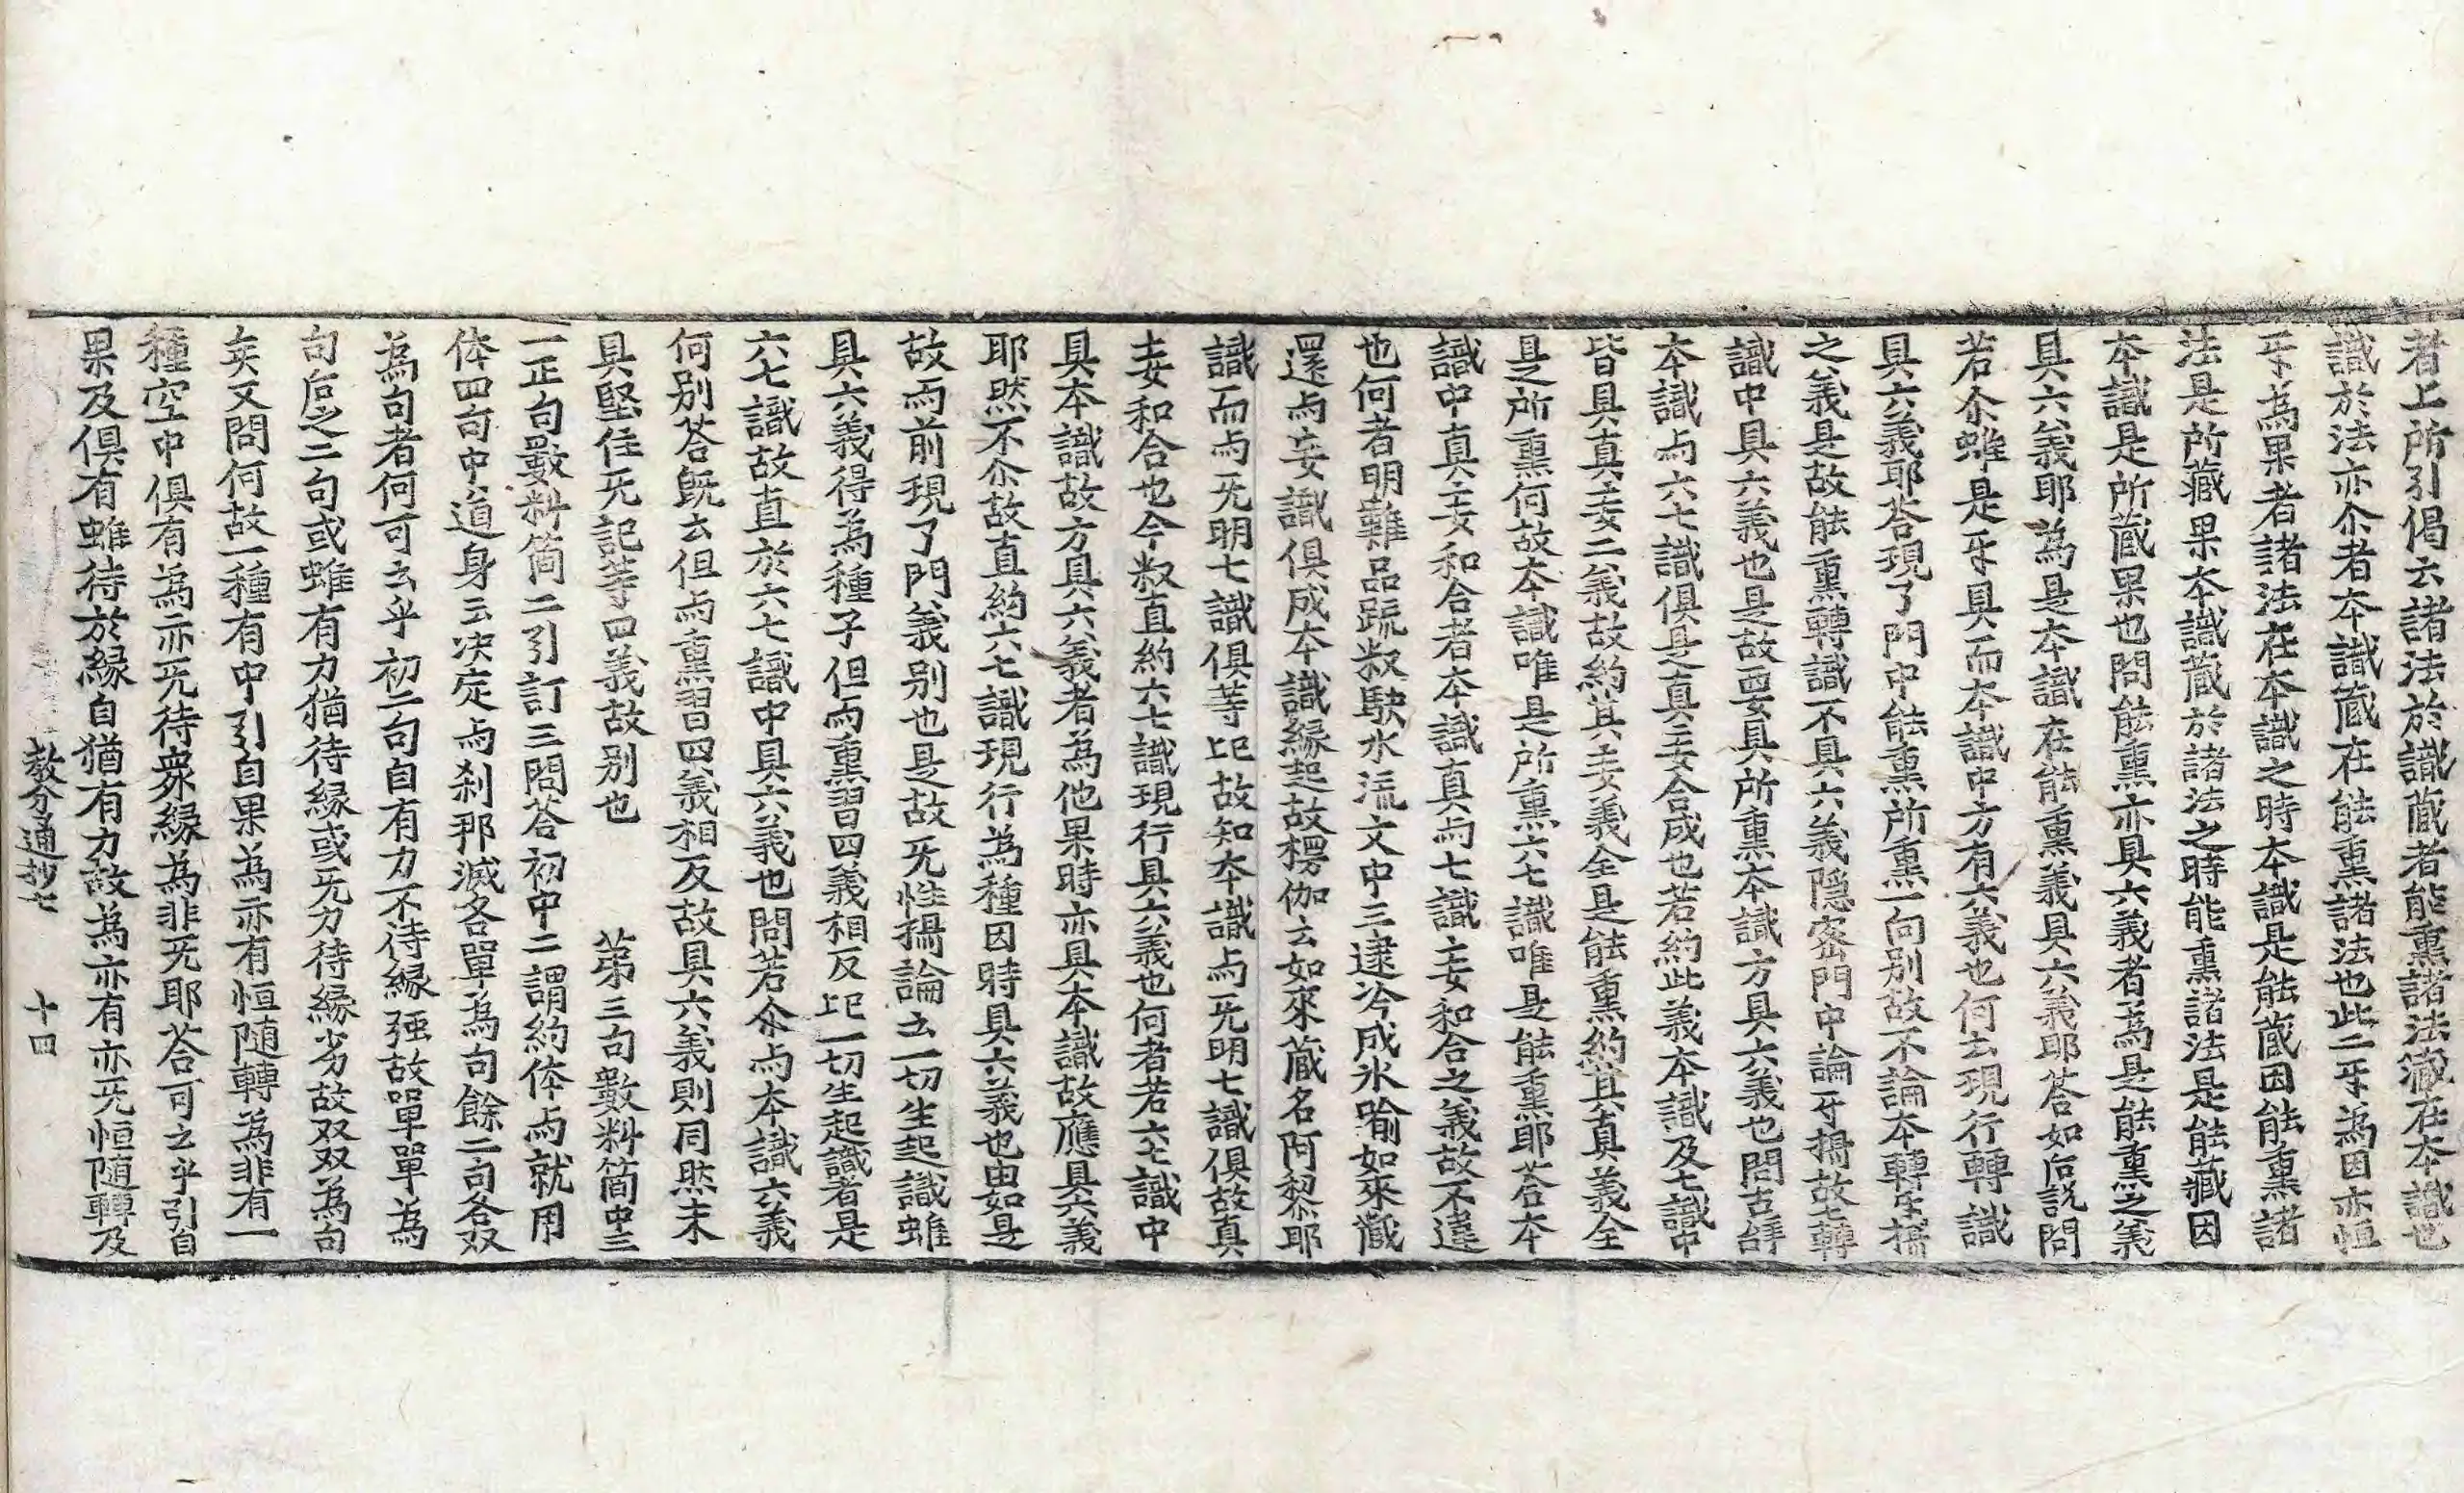 者上所引偈云諸法於識藏者能熏諸法藏在本識也
識於法亦尒者本識藏在能熏諸法也此二乎爲因亦恒
乎爲果者諸法在本識之時本識是能藏因能熏諸
法是所藏果本識藏於諸法之時能熏諸法是能藏因
本識是所藏果也問能熏亦具六義者爲是能熏之義
具六義耶爲是本識在能熏義具六義耶荅如后説問
若尒雖是乎具而本識中方有六義也何云現行轉識
具六義耶荅現了門中能熏所熏一向別故不論本轉乎攝
之義是故能熏轉識不具六義隱密門中論乎攝故七轉
識中具六義也是故要具所熏本識方具六義也問古辝
本識与六七識俱是真妄合成也若約此義本識及七識中
皆具真妄二義故約其妄義全是能熏約其真義全
是所熏何故本識唯是所熏六七識唯是能熏耶荅本
識中真妄和合者本識真与七識妄和合之義故不違
也何者明難品䟽叙駛水流文中三逮冷成氷喻如來藏
還与妄識俱成本識緣起故楞伽云如來藏名阿黎耶
識而与无明七識俱等比故知本識与无明七識俱故真
妄和合也今叙直約六七識現行具六義也何者若六七識中
具本識故方具六義者為他果時亦具本識故應具六義
耶然不尒故直約六七識現行為種因時具六義也由如是
故而前現了門義别也是故无性攝論云一切生起識雖
具六義得為種子但而熏習四義相反比一切生起識者是
六七識故直於六七識中具六義也問若尒与本識六義
何别荅旣云但而熏習四義相反故具六義則同然未
具堅住无記等四義故别也　第三句數料簡中三
一正句數料簡二引訂三問荅初中二謂約体而就用
体四句中道身云决定与刹那滅各單為句餘二句各双
為句者何可云乎初二句自有力不待緣强故單單為
句后之二句或雖有力猶待緣或无力待緣劣故双双為句
矣又問何故一種有中引自果為亦有恒随轉為非有一
種空中俱有為亦无待衆緣為非无耶荅可云乎引自
果及俱有雖待於緣自猶有力故為亦有亦无恒随轉及
教分通抄七　十四